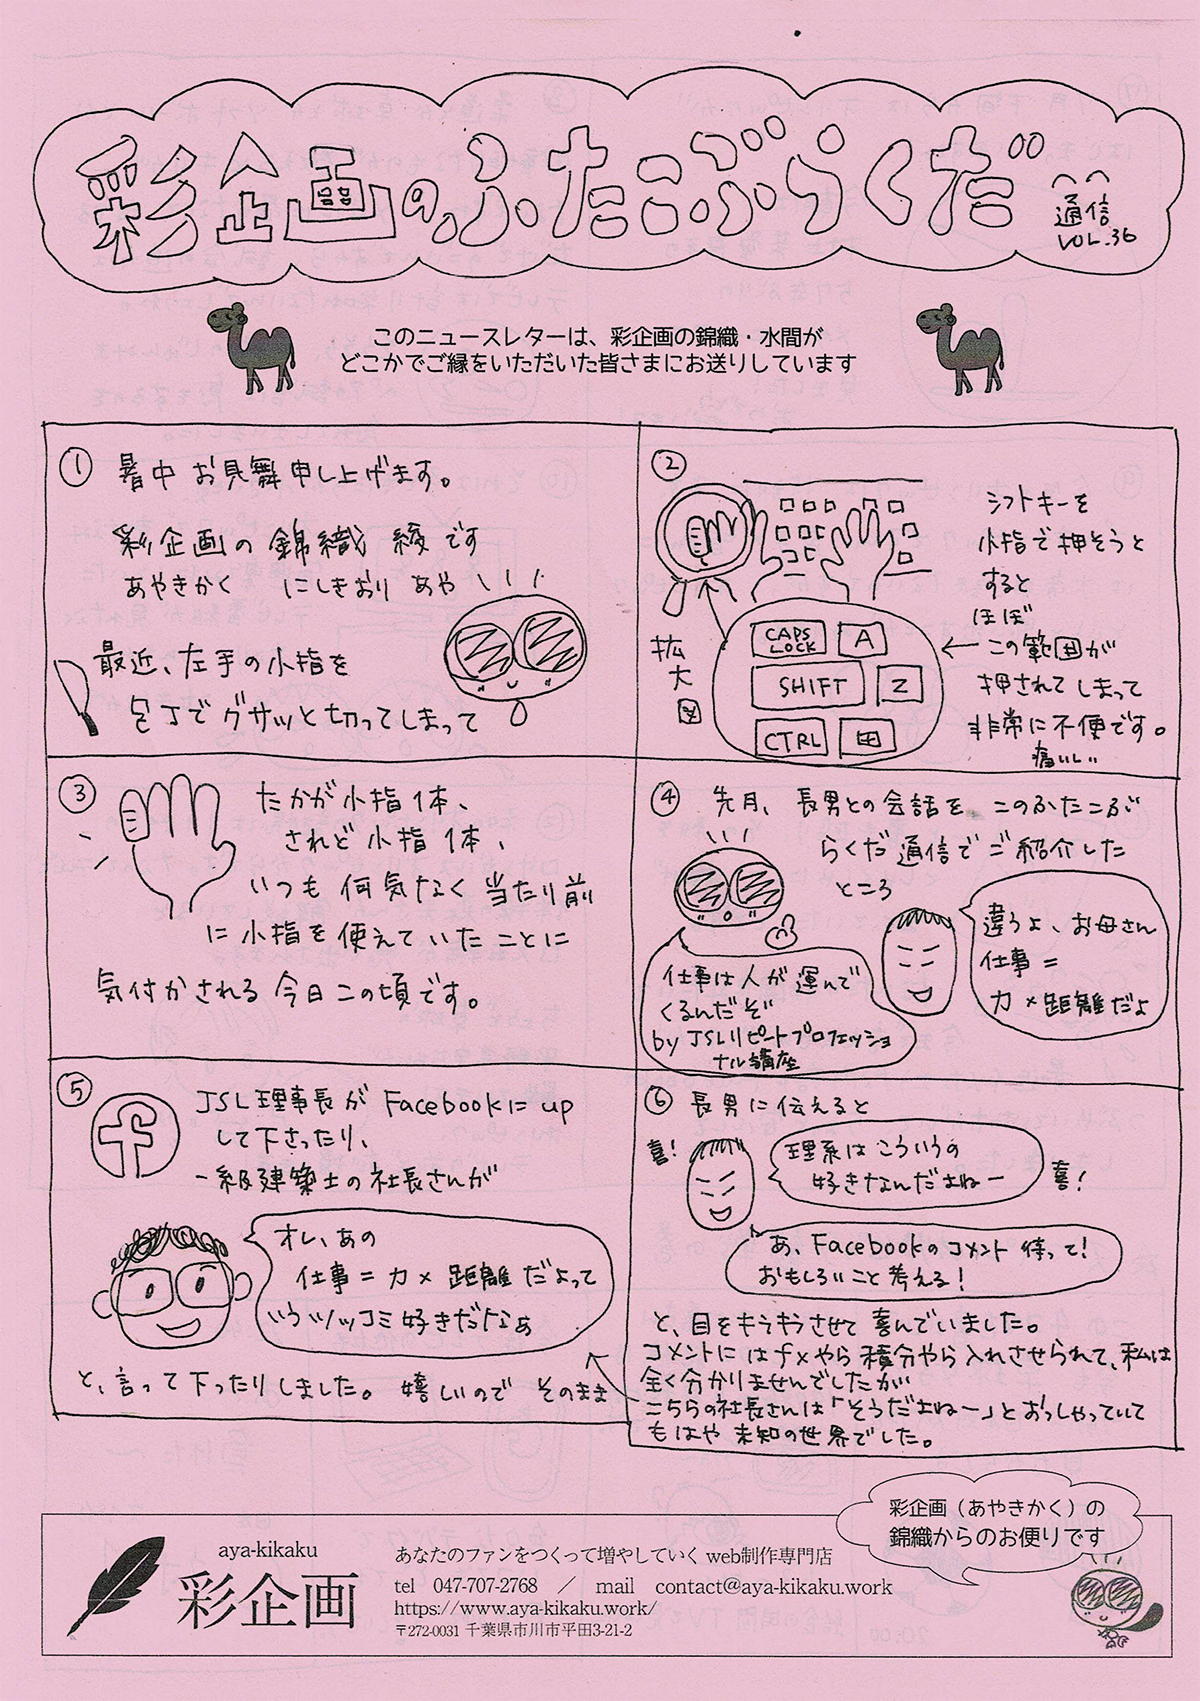 彩企画のふたこぶらくだ
通信
VOL.36
このニュースレターは、彩企画の錦織・水間が
どこかでご縁をいただいた皆さまにお送りしています
①
暑中お見舞申し上げます。
彩企画の錦織 綾です
あやきかく にしきおり あや
最近、左手の小指を
包丁でグサッと切ってしまって
②
シフトキーを
小指で押そうと
すると
ほぼ
この範囲が
押されてしまって
非常に不便です。
痛いし
拡
大
図
CAPS LOCK A
SHIFT Z
CTRL
③
たかが小指1本、
されど小指1本、
いつも何気なく当たり前
に小指を使えていたことに
気付かされる今日この頃です。
④
先月、長男との会話をこのふたこぶ
らくだ通信でご紹介した
ところ
仕事は人が運んで
くるんだぞ
by JSLリピートプロフェッショ
ナル講座
違うよ、お母さん
仕事=
力×距離だよ
⑤
JSL理事長がFacebookにup
して下さったり、
一級建築士の社長さんが
オレ、あの
仕事=力×距離だよって
いうツッコミ好きだなぁ
と、言って下ったりしました。嬉しいのでそのまま
⑥
長男に伝えると
喜!
理系はこういうの
好きなんだよねー
喜!
あ、Facebookのコメント待って!
おもしろいこと考える!
と、目をキラキラさせて喜んでいました。
コメントにはfxやら積分やら入れさせられて、私は
全く分かりませんでしたが
こちらの社長さんは「そうだよねー」とおっしゃっていて
もはや未知の世界でした。
彩企画（あやきかく）の
錦織からのお便りです
aya-kikaku
彩企画
あなたのファンをつくって増やしていくweb制作専門店
tel 047-707-2768 ／ mail contact@aya-kikaku.work
https://www.aya-kikaku.work/
〒272-0031 千葉県市川市平田3-21-2